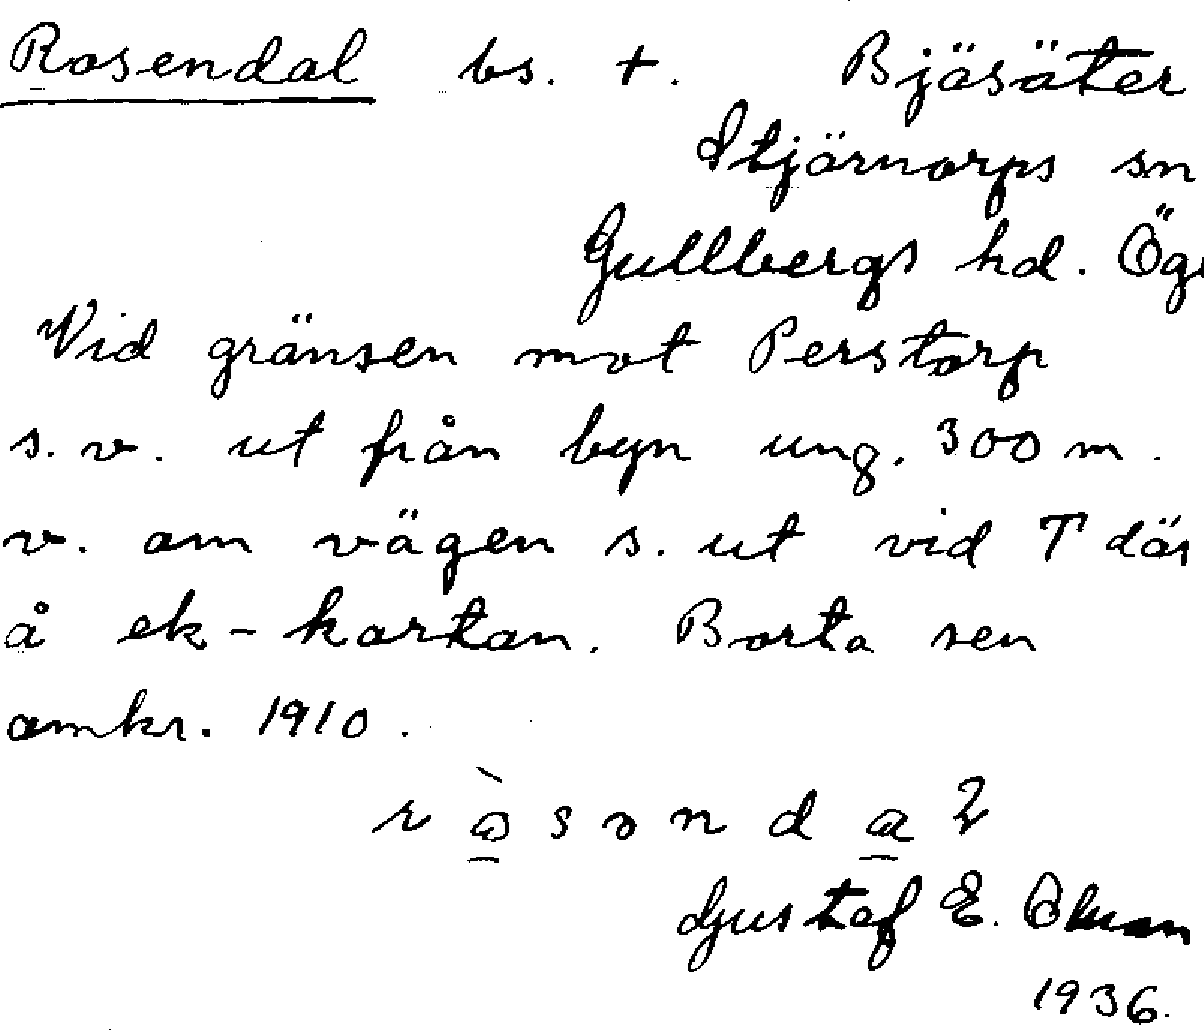 Rosendal bs. +. Bjäsäter
Stjärnorps sn
Gullbergs hd. Ög
Vid gränsen mot Perstorp
s.v. ut från byn ung. 300 m.
v. om vägen s. ut vid T där
å ek-kartan. Borta sen
omkr. 1910.
Gustaf E.
1936.